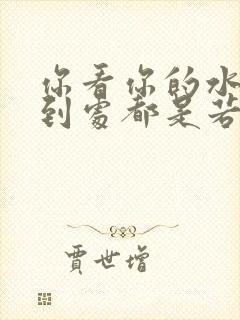 你看你的水
到處都是若
賈世增